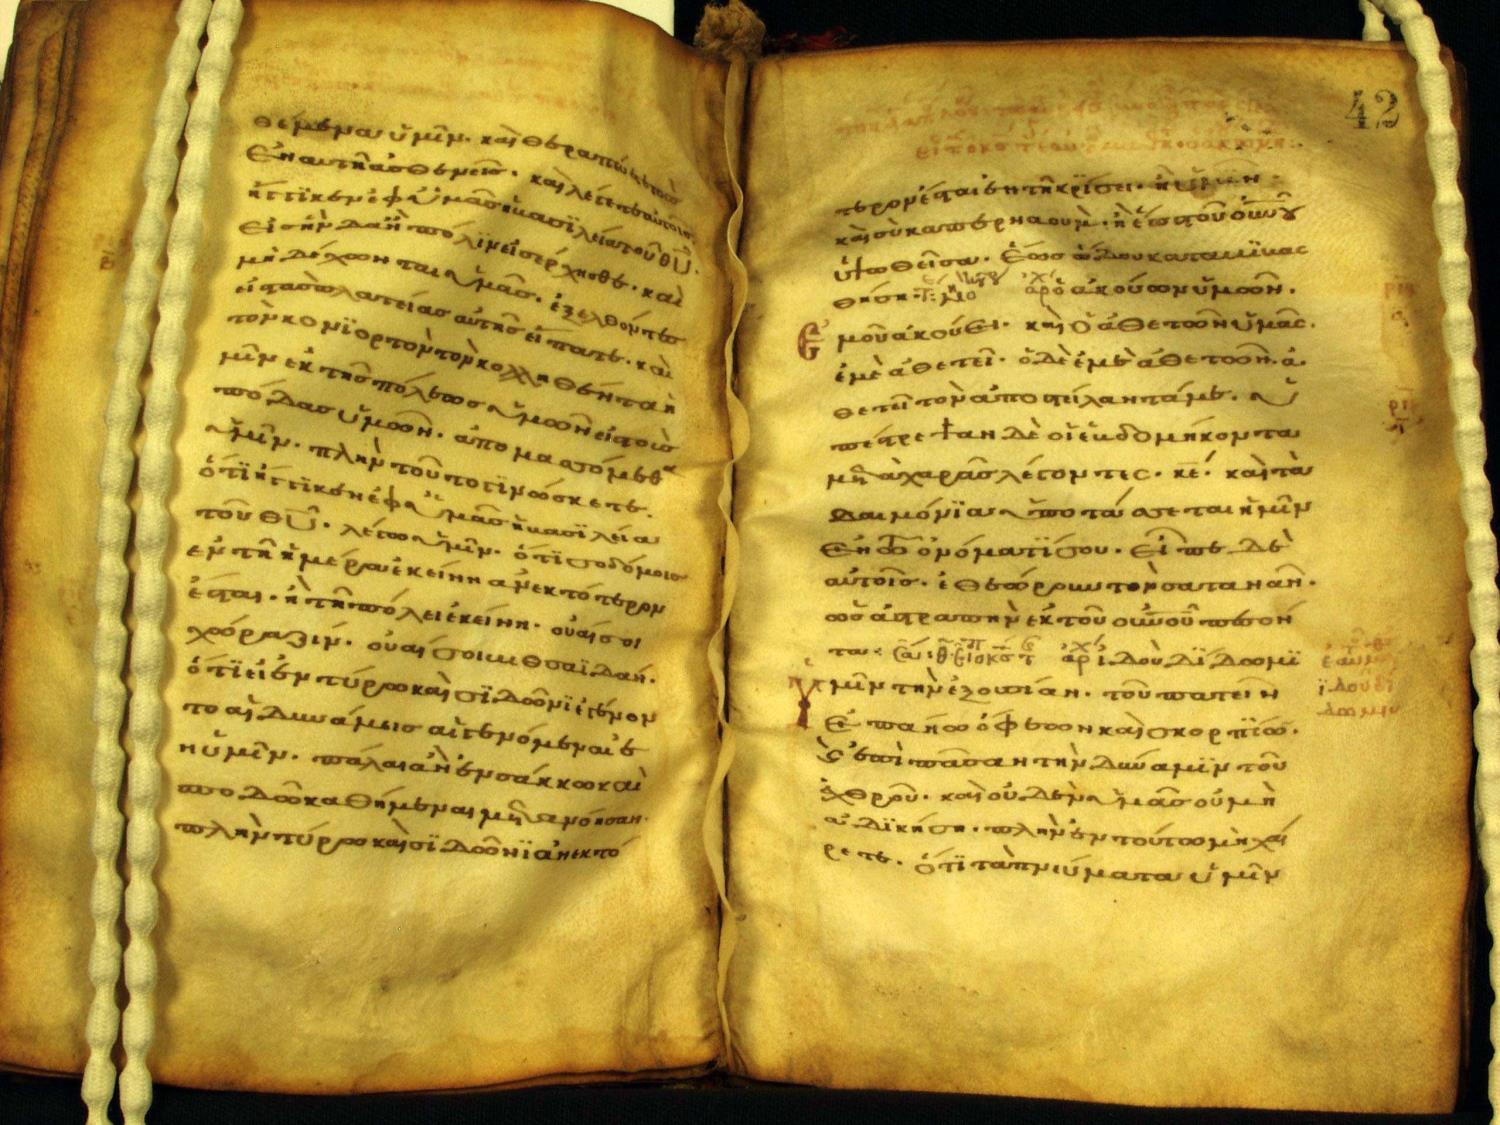 θέμενα ὑμῖν· καὶ θεραπεύετε τοὺς
ἐν αὐτῇ ἀσθενεῖς· καὶ λέγετε αὐτοῖς
ἤγγικεν ἐφ' ὑμᾶς ἡ βασιλεία τοῦ θυ·
εἰς ἣν δ' ἂν πόλιν εἰσέρχησθε· καὶ
μὴ δέχωνται ὑμᾶς· ἐξελθόντες
εἰς τὰς πλατείας αὐτῆς εἴπατε· καὶ
τὸν κονιορτὸν τὸν κολληθέντα ἡ
μῖν ἐκ τῆς πόλεως ὑμῶν εἰς τοὺς
πόδας ὑμῶν· ἀπομασσόμεθα
ὑμῖν· πλὴν τοῦτο γινώσκετε·
ὅτι ἤγγικεν ἐφ' ὑμᾶς ἡ βασιλεία
τοῦ θυ· λέγω ὑμῖν· ὅτι σοδόμοις
ἐν τῇ ἡμέρα ἐκείνη ἀνεκτότερον
ἔσται· ἢ τῇ πόλει ἐκείνη· οὐαί σοι
χωραζίν· οὐαί σοι βιθσαϊδάν·
ὅτι εἰ ἐν τύρω καὶ σιδῶνι ἐγένον
το αἱ δυνάμεις αἱ γενόμεναι ἐ
ν ὑμῖν· πάλαι ἂν ἐν σάκκω καὶ
σποδῶ καθήμεναι μετενόησαν·
πλὴν τύρω καὶ σιδῶνι ἀνεκτό
42
τερον ἔσται ἐν τῇ κρίσει· ἢ ὑμῖν·
καὶ σὺ καπερναούμ· ἡ ἕως τοῦ οὐνου
ὑψωθεῖσα· ἕως ἅδου καταβιβας
θήση· ἀκούων ὑμῶν·
ἐμοῦ ἀκούει· καὶ ὁ ἀθετῶν ὑμᾶς·
ἐμὲ ἀθετεῖ· ὁ δὲ ἐμὲ ἀθετῶν· ἀ
θετεῖ τὸν ἀποστείλαντά με· ὑ
πέστρεψαν δὲ οἱ ἑβδομήκοντα
μετὰ χαρᾶς λέγοντες· κε· καὶ τὰ
δαιμόνια ὑποτάσσεται ἡμῖν
ἐν τῶ ὀνόματί σου· εἶπε δὲ
αὐτοῖς· ἐθεώρουν τὸν σατανᾶν·
ὡς ἀστραπὴν ἐκ τοῦ οὐνοῦ πεσόν
τα· ἰδοὺ δίδωμι
ὑμῖν τὴν ἐξουσίαν· τοῦ πατεῖν
ἐπάνω ὄφεων καὶ σκορπίων·
καὶ ἐπὶ πᾶσαν τὴν δύναμιν τοῦ
ἐχθροῦ· καὶ οὐδὲν ὑμᾶς οὐ μὴ
ἀδικήση· πλὴν ἐν τούτω μὴ χαί
ρετε· ὅτι τὰ πνεύματα ὑμῖν